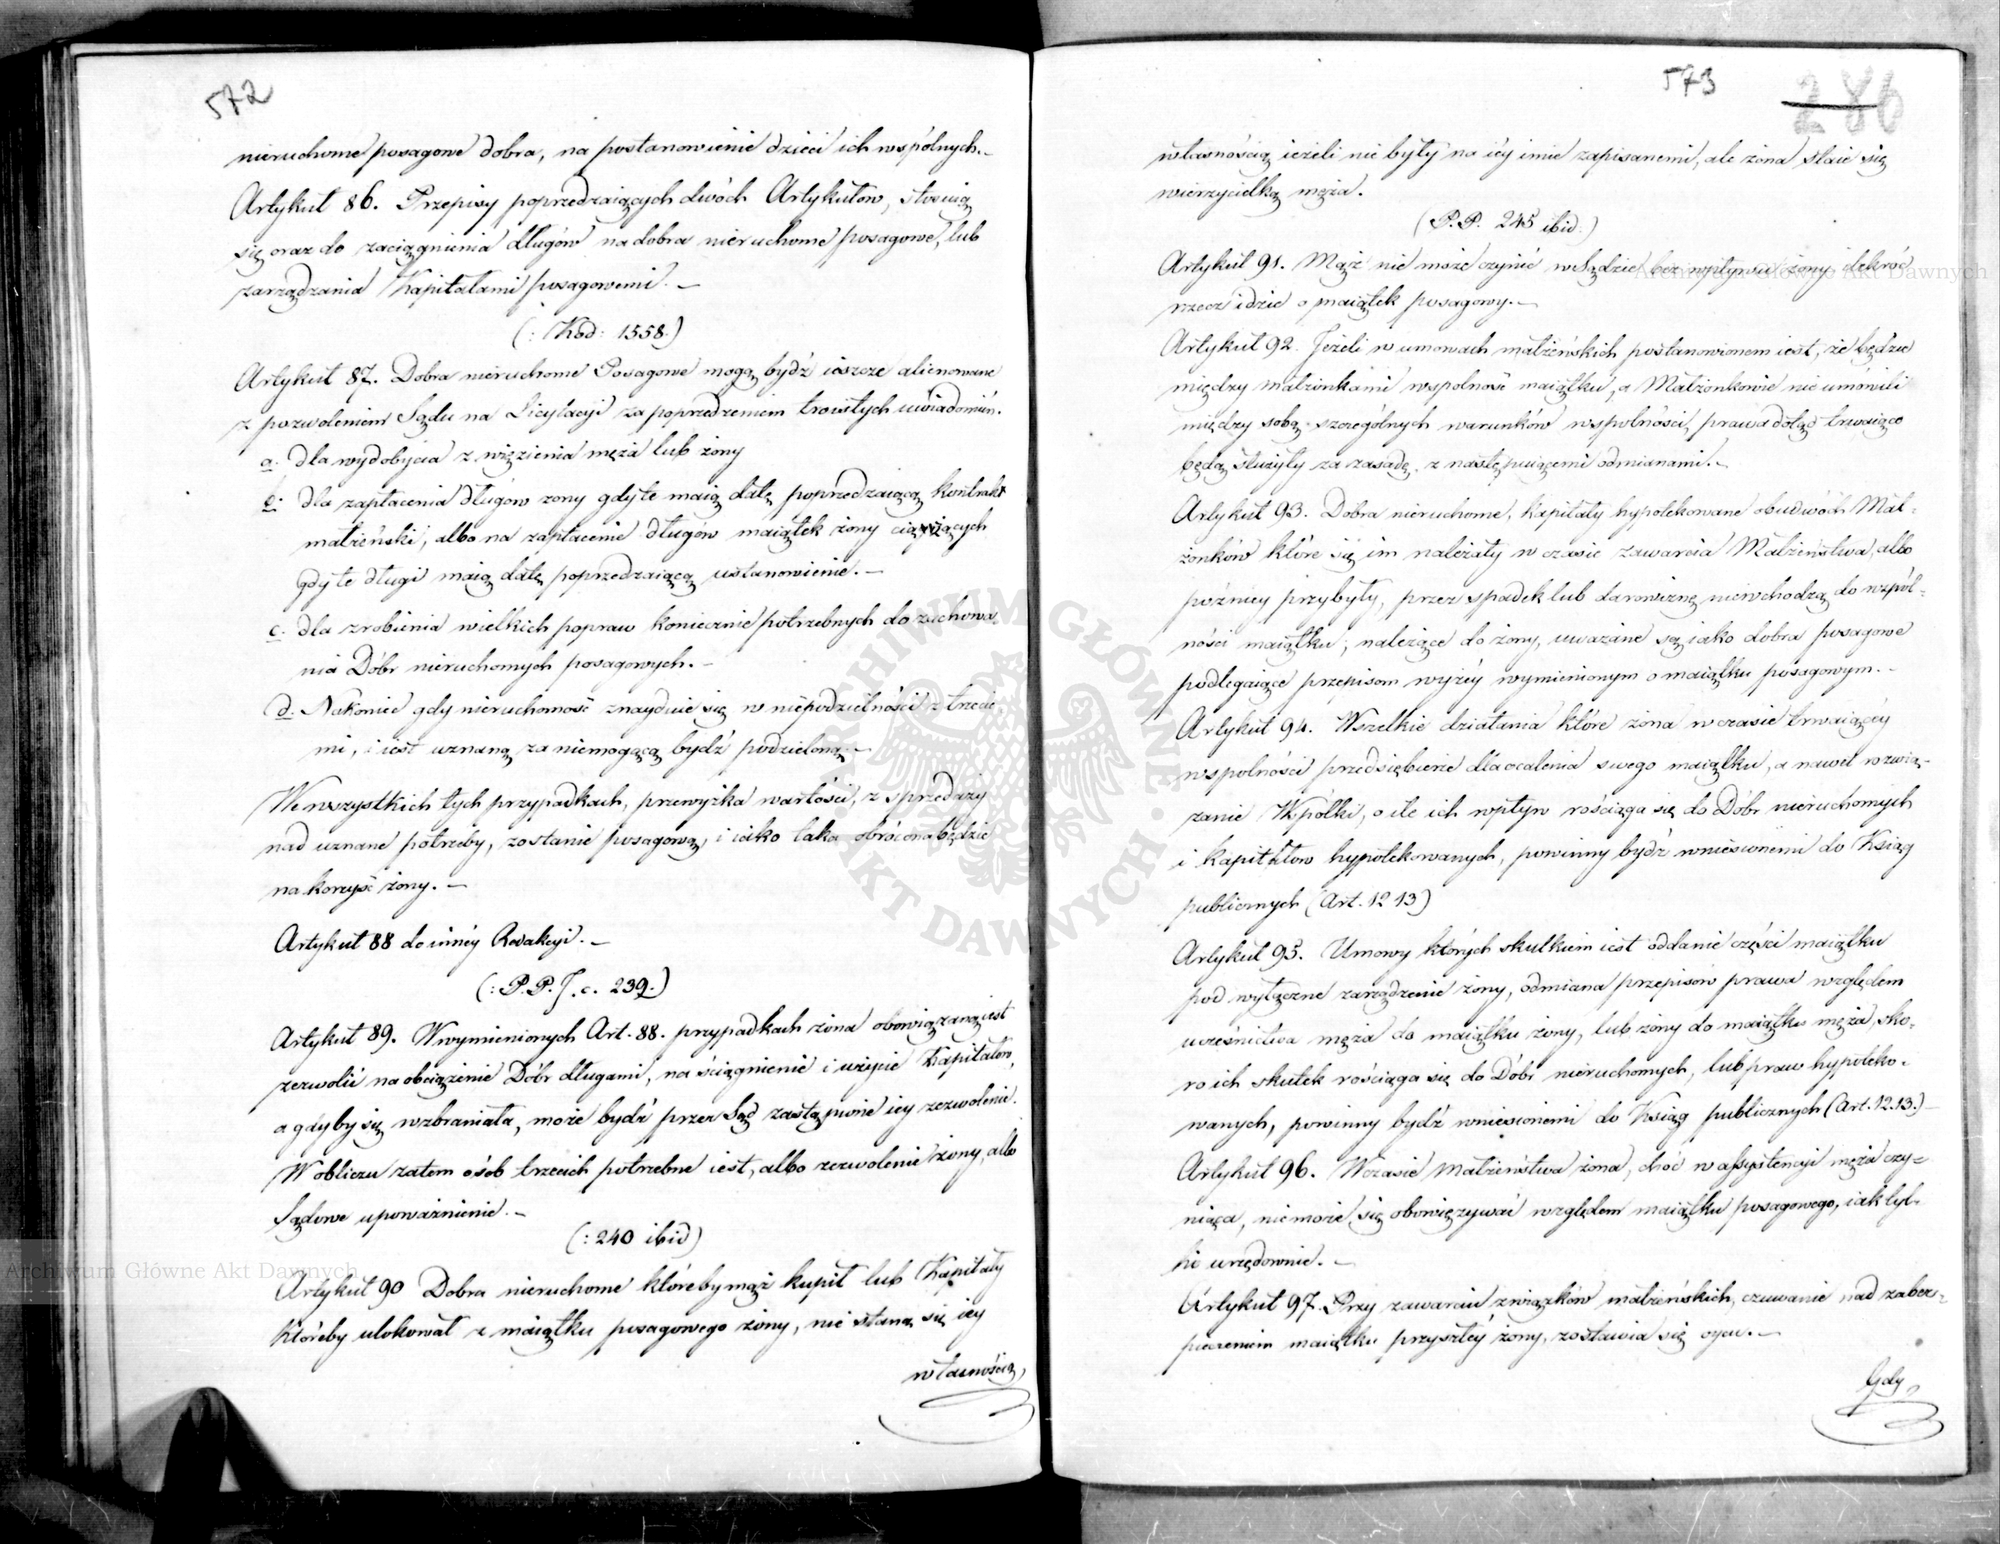 572
nieruchome posagowe dobra, na postanowienie dzieci ich wspólnych.-
Artykuł 86. Przepisy poprzedzaiących dwóch Artykułow, stosuią
się oraz do zaciągnienia długów na dobra nieruchome posagowe, lub
zarządzania Kapitałami posagowemi. -
(: Kod: 1558.)
Artykuł 87. Dobra nieruchome Posagowe mogą bydź ieszcze alienowane
z pozwoleniem Sądu na Licytacyi za poprzedzeniem troistych uwiadomień.
a. dla wydobycia z więzienia męża lub żony
b. dla zapłacenia długow zony gdy te maią datę poprzedzaiącą kontrakt
małżeński, albo na zapłacenie długów maiątek żony ciążących
gdy te długi maią datę poprzedzaiącą ustanowienie. -
c. dla zrobienia wielkich popraw koniecznie potrzebnych do zachowa
nia Dóbr nieruchomych posagowych. -
d. Nakoniec gdy nieruchomość znayduie się w niepodzielności z trzeci
mi, i iest uznaną za niemogącą bydź podzieloną -
We wszystkich tych przypadkach, przewyżka wartości, z sprzedaży
nad uznane potrzeby, zostanie posagową, i iako taka obrócona będzie
na korzyść żony. -
Artykuł 88 do inney Redakcyi. -
(: P.P.J. c. 239.)
Artykuł 89. W wymienionych Art. 88. przypadkach zona obowiązaną iest
zezwolić na obciążenie Dóbr długami, na ściągnienie i użycie Kapitałow,
a gdyby się wzbraniała, może bydź przez Sąd zastąpione iey zezwolenie.
W obliczu zatem osób trzecich potrzebne iest, albo zezwolenie żony, albo
Sądowe upoważnienie. -
(: 240 ibid)
Artykuł 90 Dobra nieruchome któreby mąż kupił lub Kapitały
któreby ulokował z maiątku posagowego żony, nie staną się iey
własnością
573
286
własnością ieżeli nie były na iey imie zapisanemi, ale żona staie się
wierzycielką męża.
(P.P. 245 ibid.)
Artykuł 91. Mąż nie może czynić w Sądzie bez wpływu żony ilekroć
rzecz idzie o maiątek posagowy. -
Artykuł 92. Jeżeli w umowach małżeńskich postanowionem iest, że będzie
między małżonkami wspolność maiątku, a Małżonkowie nie umówili
między sobą szczególnych warunków wspolności, prawa dotąd trwaiące
będą służyły za zasadę z następuiącemi odmianami. -
Artykuł 93. Dobra nieruchome, kapitały hypotekowane obudwóch Mał-
żonków które się im należały w czasie zawarcia Małżeństwa, albo
pózniey przybyły, przez spadek lub darowiznę niewchodzą do wspól-
ności maiątku; należące do żony, uważane są iako dobra posagowe
podlegaiące przepisom wyżey wymienionym o maiątku posagowym. -
Artykuł 94. Wszelkie działania które żona w czasie trwaiącéy
wspolności przedsiębierze dla ocalenia swego maiątku, a nawet rozwią-
zanie Wspólki, o ile ich wpływ rościąga się do Dóbr nieruchomych
i kapitałow hypotekowanych, powinny bydź wniesionemi do Ksiąg
publicznych (Art. 12 13)
Artykuł 95. Umowy których skutkiem iest oddanie części maiątku
pod wyłączne zarządzenie żony, odmiana przepisów prawa względem
uczestnictwa męża do maiątku żony, lub żony do maiątku męża, sko-
ro ich skutek rościąga się do Dóbr nieruchomych, lub praw hypoteko-
wanych, powinny bydź wniesionemi do Ksiąg publicznych (Art. 12.13.)-
Artykuł 96. W czasie Małżeństwa żona, choć w assystencyi męża czy-
niąca, nie może się obowięzywać względem maiątku posagowego, iak tyl-
ko urzędownie. -
Artykuł 97. Przy zawarciu związków małżeńskich, czuwanie nad zabez-
pieczeniem maiątku przyszłéy żony, zostawia się oycu. -
Gdy
ARCHIWUM GŁÓWNE AKT DAWNYCH
Archiwum Główne Akt Dawnych
Archiwum Główne Akt Dawnych